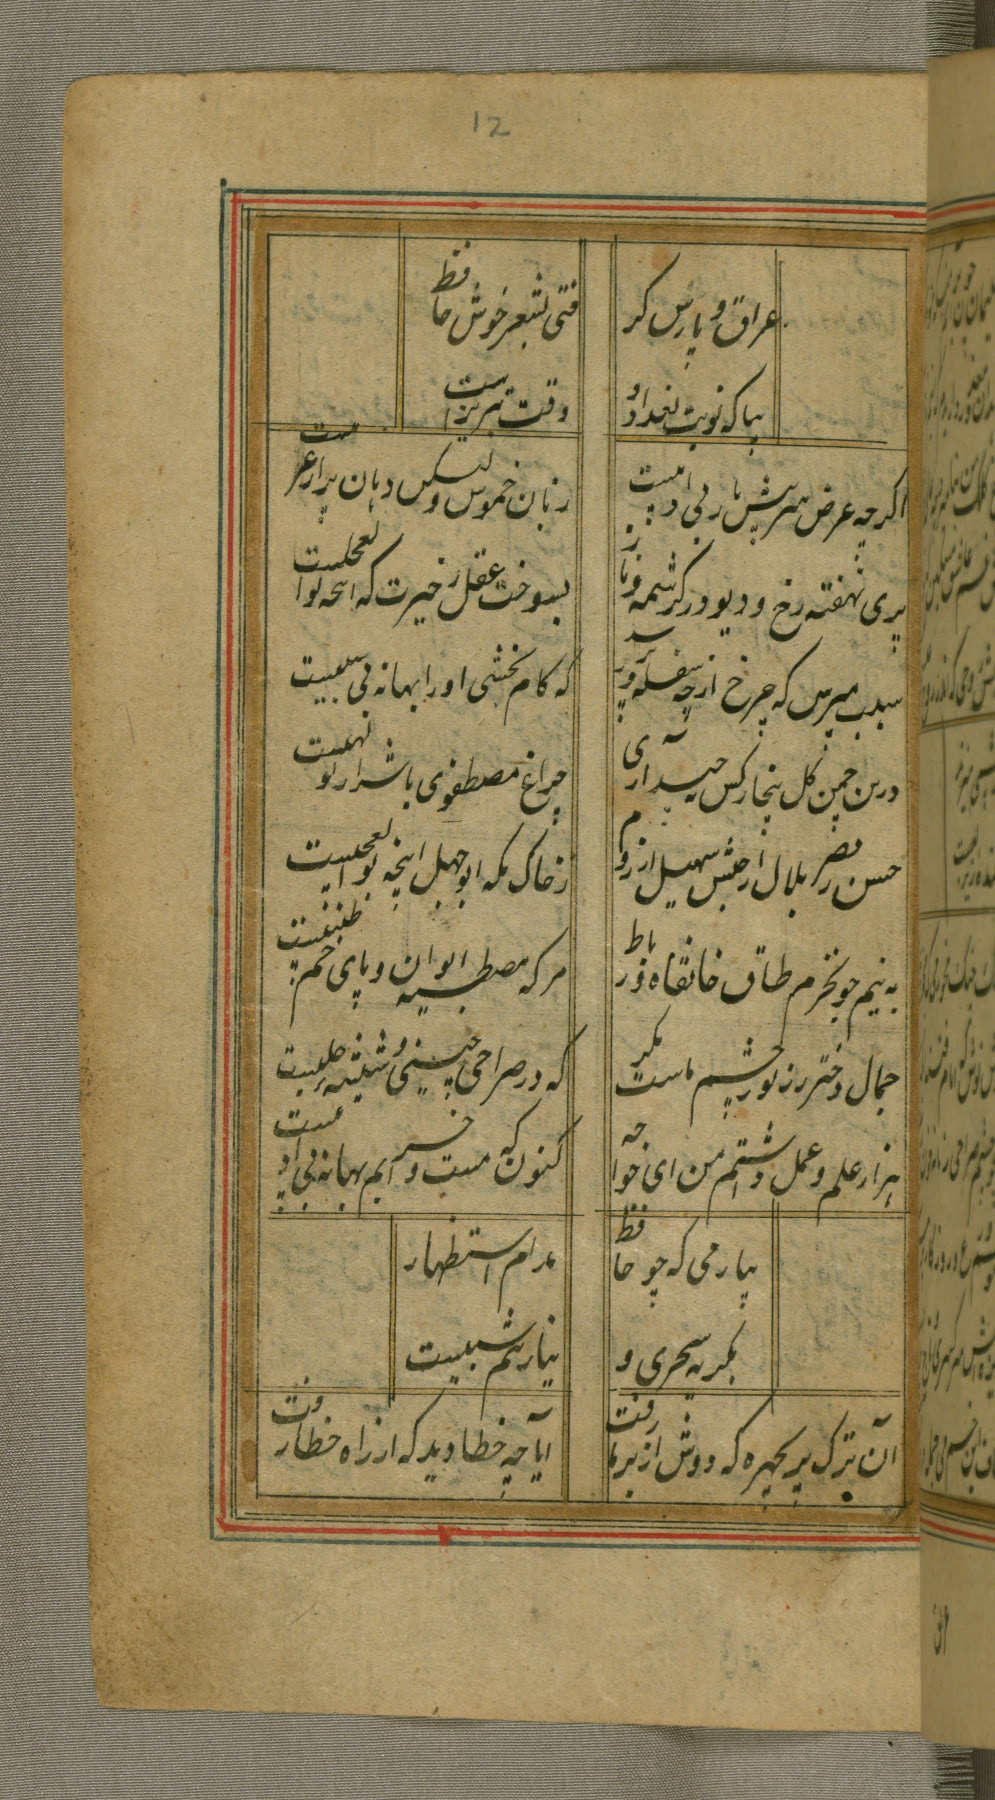 12
عراق و پارس گر
فتی بشعر خوش حافظ
بیا که نوبت بغداد و
وقت تبریز است
اگر چه عرض هنر پیش یار بی ادبیست
زبان خموش ولیکن دهان پر از عربیست
پری نهفته رخ و دیو در کرشمه و ناز
بسوخت عقل ز حیرت که اینچه بوالعجبیست
سبب مپرس که چرخ از چه سفله پرور شد
که کام بخشی او را بهانه بی سببیست
درین چمن گل بیخار کس نچید آری
چراغ مصطفوی با شرار بولهبیست
حسن ز بصره بلال از حبش سهیل از روم
ز خاک مکه ابوجهل اینچه بوالعجبیست
به نیم جو نخرم طاق خانقاه و رباط
مرا که مصطبه ایوان و پای خم طنبیست
جمال دختر رز نور چشم ماست مگر
که در صراحی چینی و شیشه حلبیست
هزار علم و عمل داشتم من ای خواجه
کنون که مست و خرابم بهانه بی ادبیست
بیار می که چو حافظ
مدام استظهار
بگریه سحری و
نیاز نیم شبیست
آن ترک پریچهره که دوش از بر ما رفت
آیا چه خطا دید که از راه خطا رفت